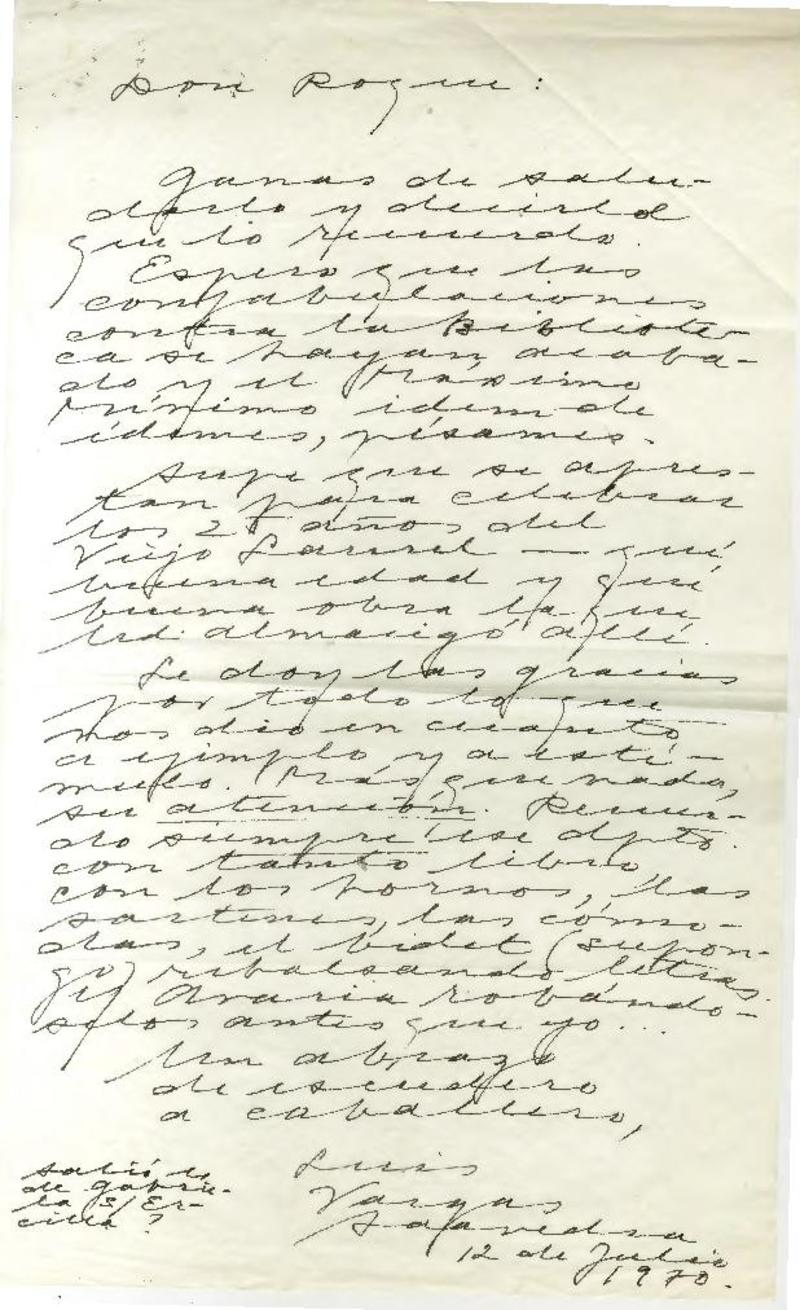 Don Roque:
Ganas de salu-
darlo y decirle
que lo recuerdo.
Espero que las
confabulaciones
contra la Bibliote-
ca se hayan acaba-
do y el Máximo
Mínimo idem de
idemes, pésames.
Supe que se apres-
tan para celebrar
los 25 años del
Viejo Laurel — qué
buena edad y qué
buena obra la que
Ud. almacigó allí.
Le doy las gracias
por todo lo que
nos dio en cuanto
a ejemplo y a estí-
mulo. Más que nada,
su atención. Recuer-
do siempre ese dpto.
con tanto libro,
con los hornos, las
sartenes, las cómo-
das, el bidet (supon-
go) rebalsando letras.
Y Araria robándo-
selos antes que yo...
Un abrazo
de escudero
a caballero,
Luis
Vargas
Saavedra
12 de Julio
1970.
salió lo
de Gabrie-
la s/ Er-
cilla?